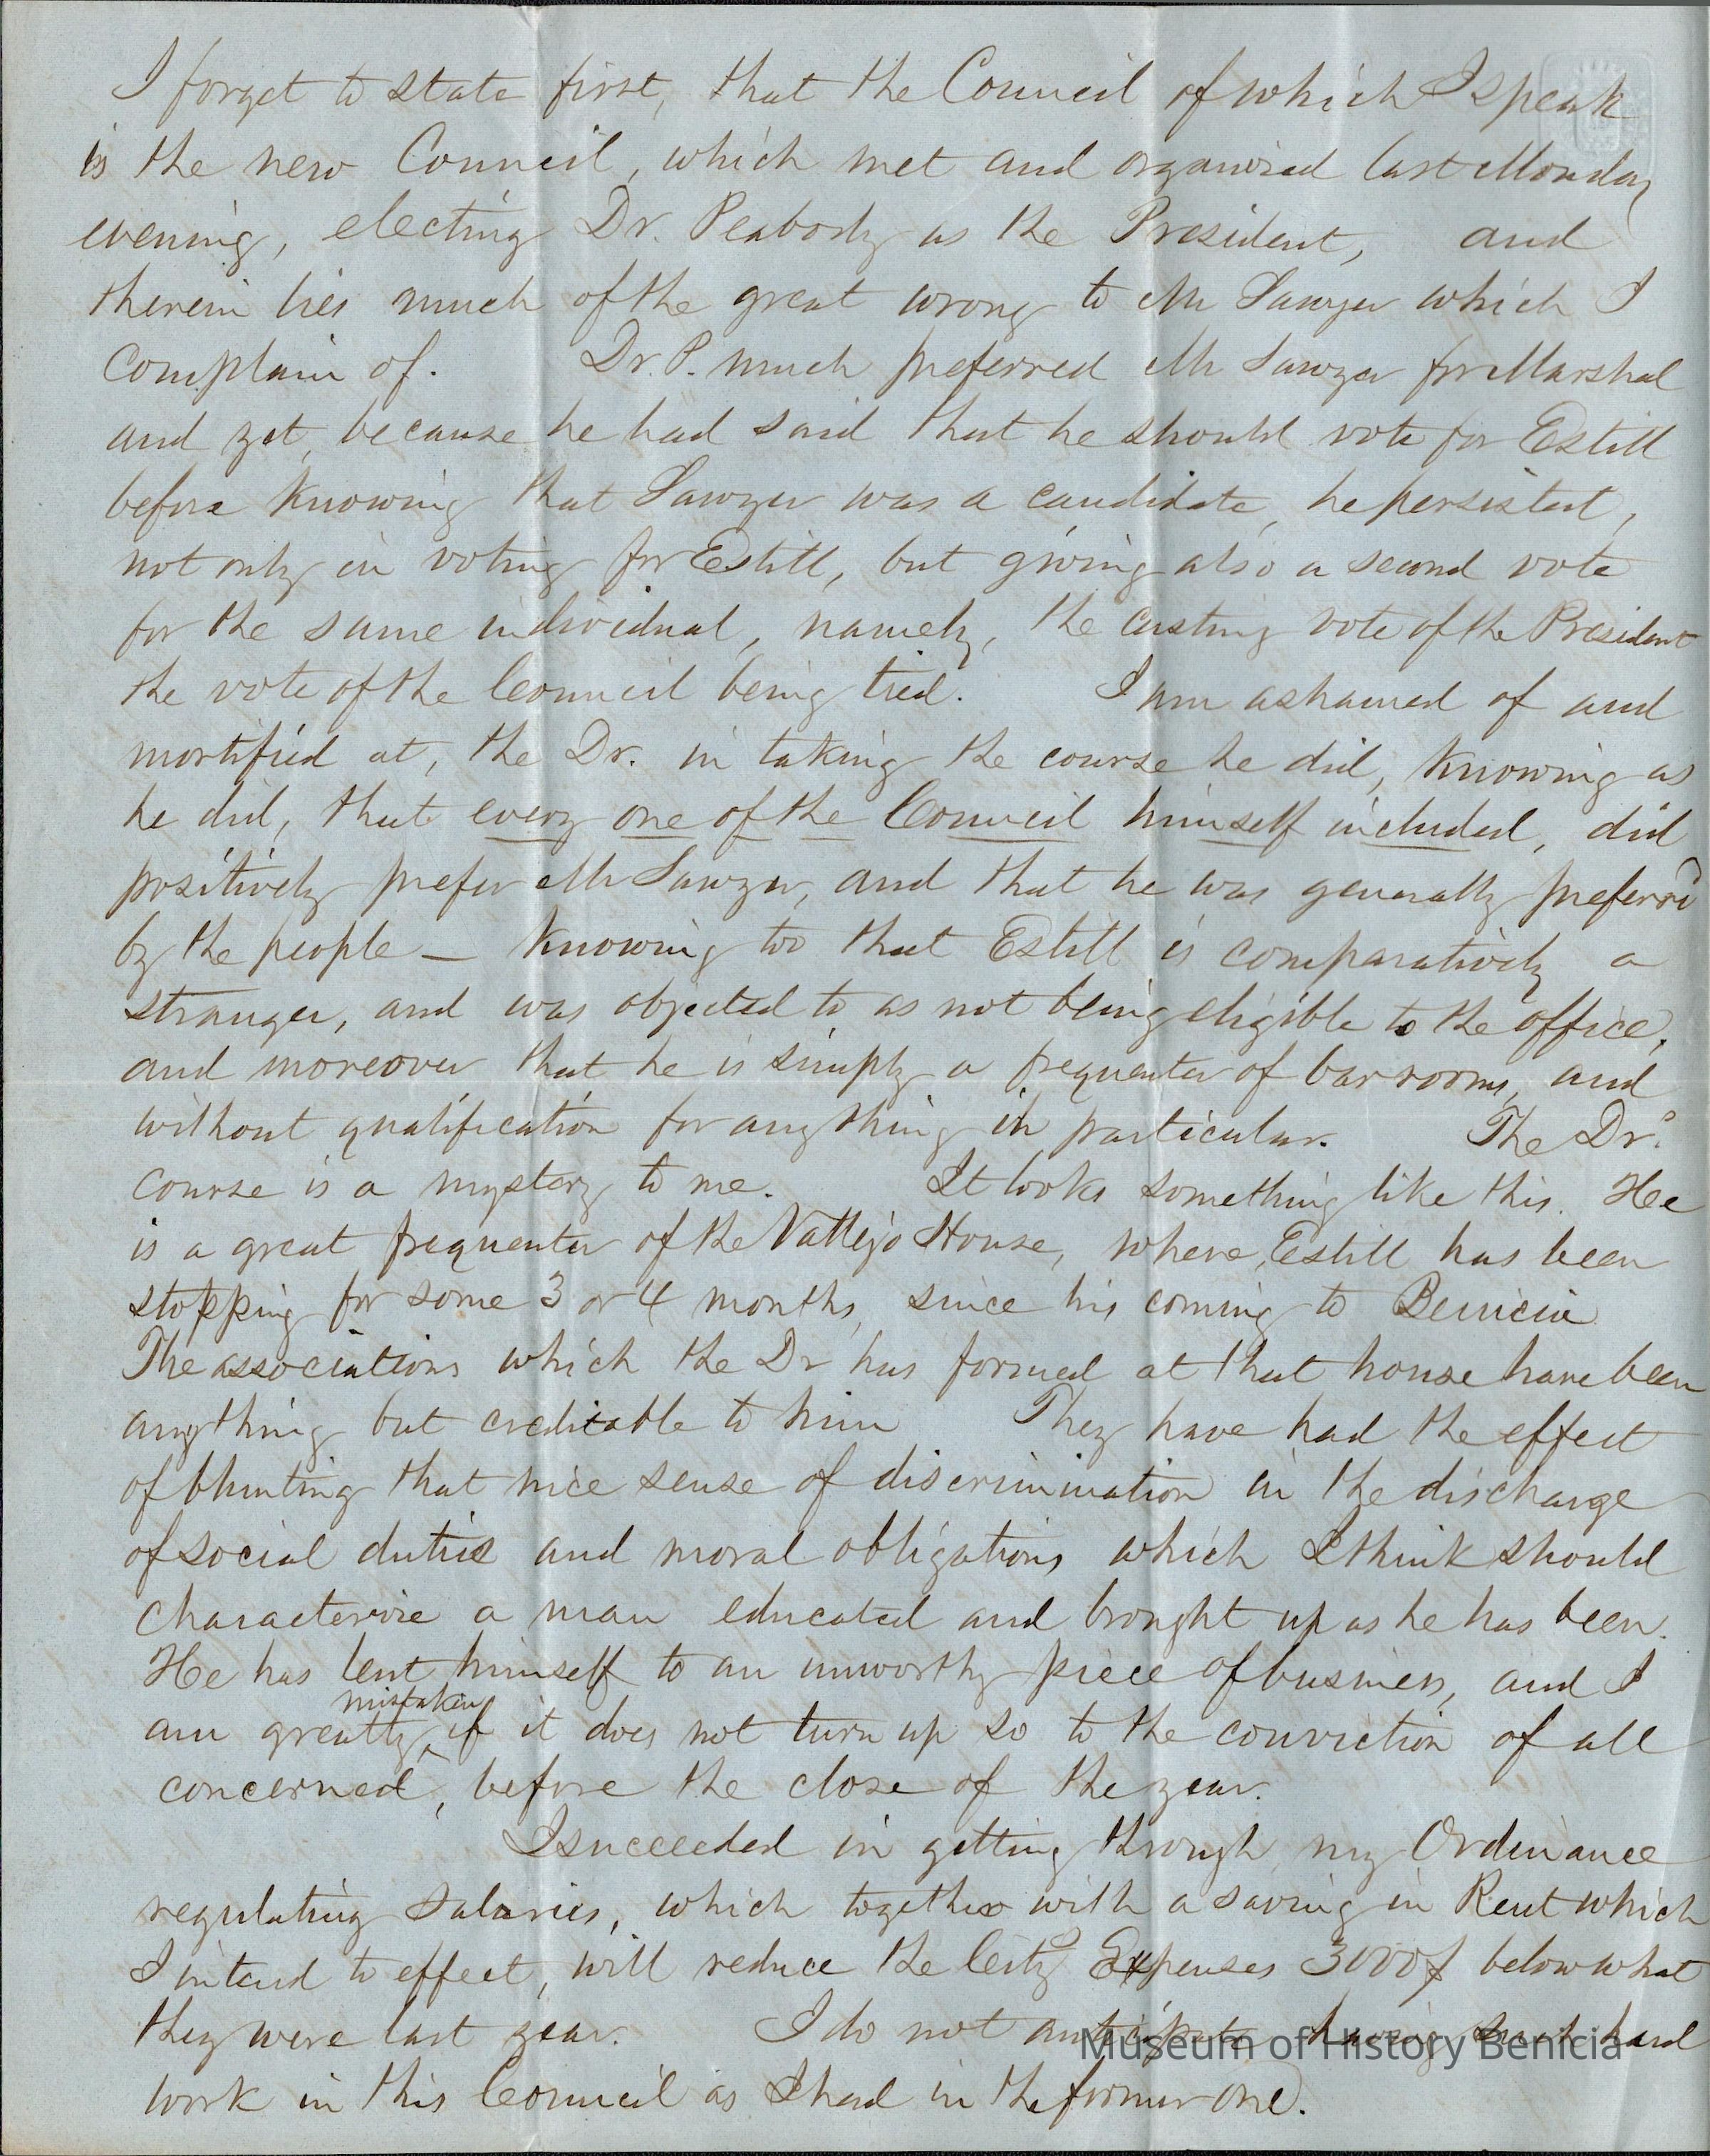 I forget to state first, that the Council of which I speak
is the new Council, which met and organized last Monday
evening, electing Dr. Peabody as the President, and
therein lies much of the great wrong to Mr Sawyer which I
complain of. Dr. P. much preferred Mr Sawyer for Marshal
and yet, because he had said that he should vote for Estill
before knowing that Sawyer was a candidate, he persisted,
not only in voting for Estill, but giving also a second vote
for the same individual, namely, the casting vote of the President
the vote of the Council being tied. I am ashamed of and
mortified at, the Dr. in taking the course he did, knowing as
he did, that every one of the Council himself included, did
positively prefer Mr Sawyer, and that he was generally preferrd
by the people — knowing too that Estill is comparatively a
stranger, and was objected to as not being eligible to the office,
and moreover that he is simply a frequenter of barrooms, and
without qualification for anything in particular. The Dr.s
course is a mystery to me. It looks something like this. He
is a great frequenter of the Vallejo House, where Estill has been
stopping for some 3 or 4 months, since his coming to Benicia
The associations which the Dr has formed at that house have been
anything but creditable to him They have had the effect
of blunting that nice sense of discrimination in the discharge
of social duties and moral obligations which I think should
characterize a man educated and brought up as he has been.
He has lent himself to an unworthy piece of business, and I
mistaken
am greatly, if it does not turn up so to the conviction of all
concerned, before the close of the year.
I succeeded in getting through my Ordinance
regulating salaries, which together with a saving in Rent which
I intend to effect, will reduce the City Expenses 3000$ below what
they were last year. I do not anticipate having such hard
Museum of History Benicia
work in this Council as I had in the former one.